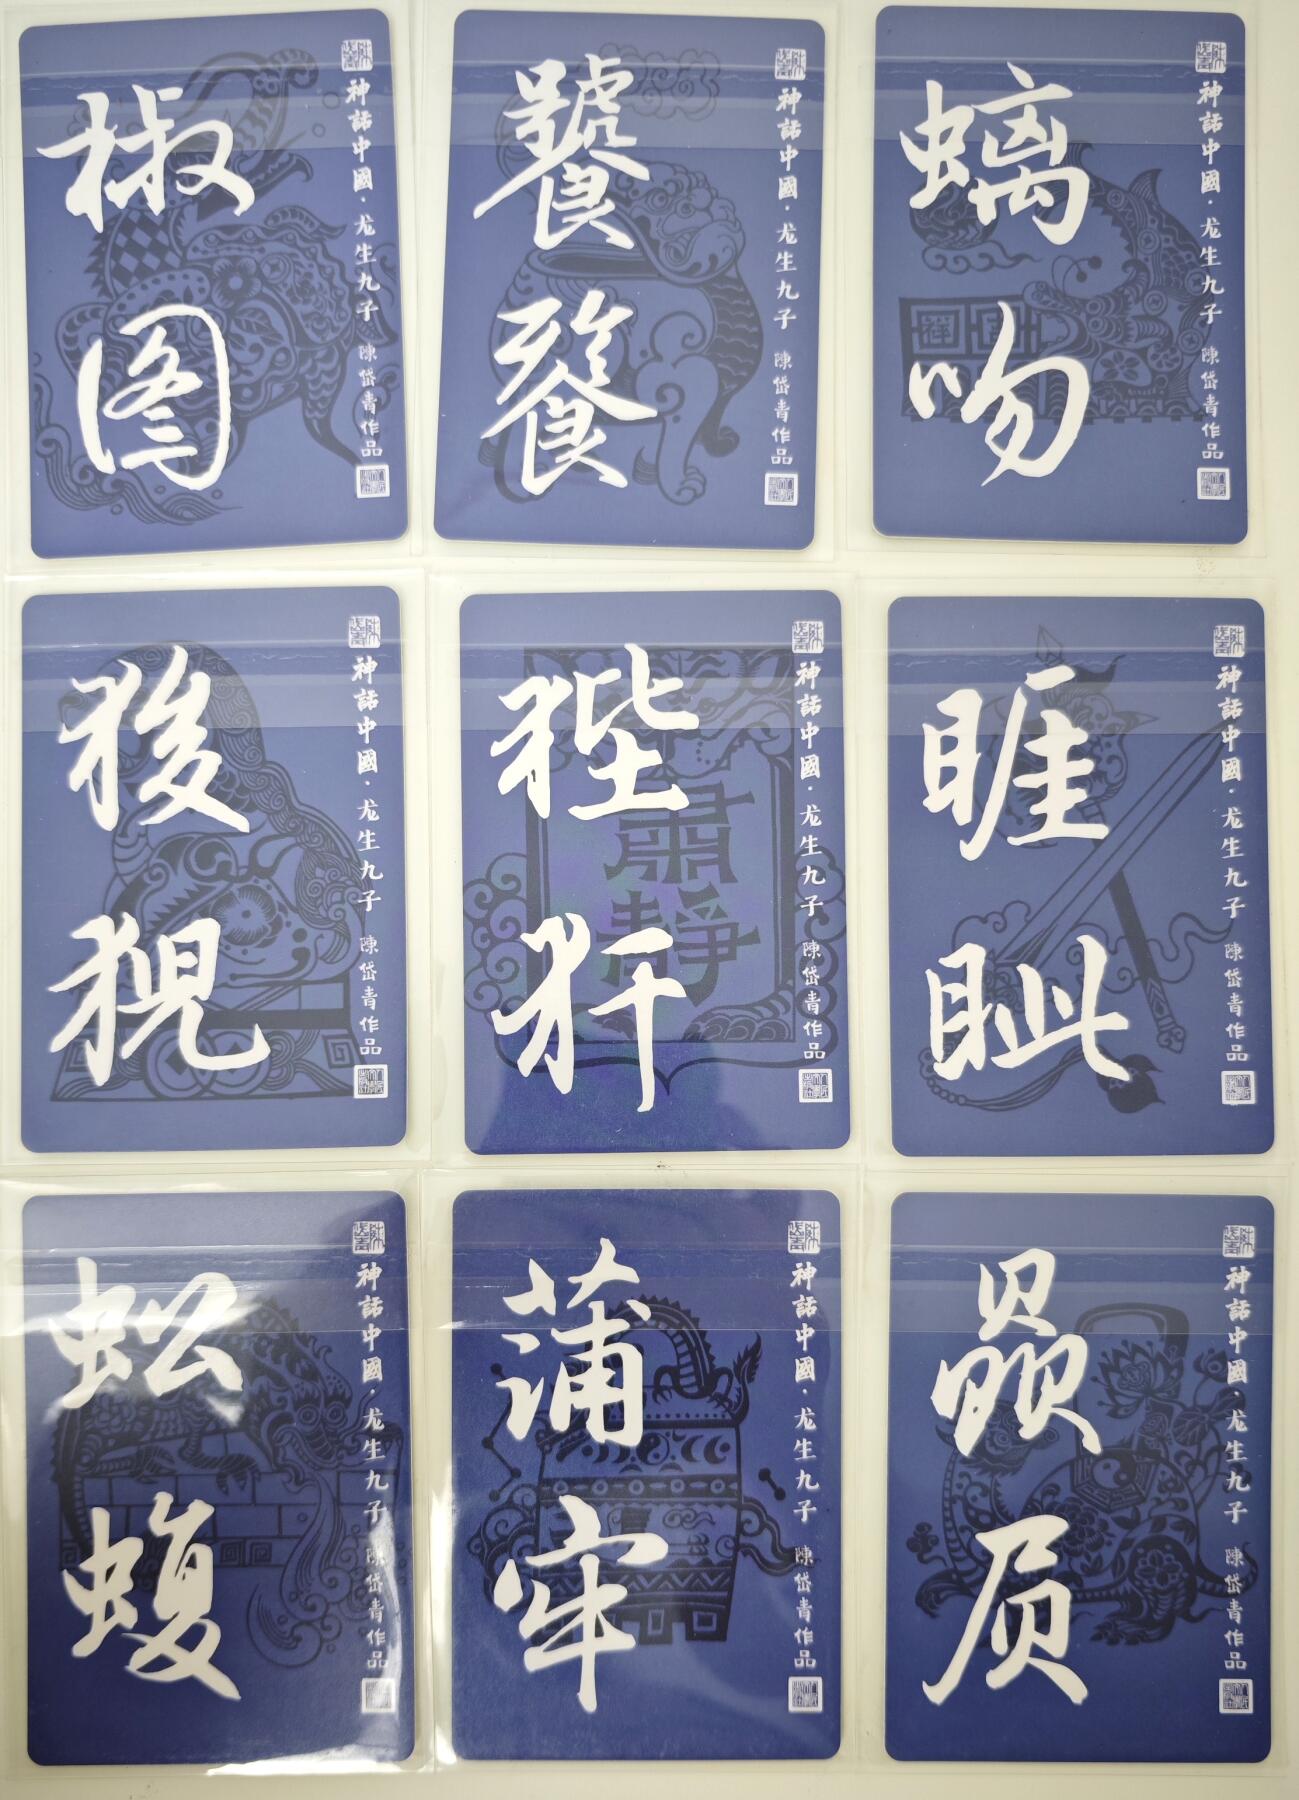 神話中國·龙生九子 陳岱青作品
椒图
神話中國·龙生九子 陳岱青作品
饕餮
神話中國·龙生九子 陳岱青作品
螭吻
神話中國·龙生九子 陳岱青作品
狻猊
神話中國·龙生九子 陳岱青作品
狴犴
肅靜
神話中國·龙生九子 陳岱青作品
睚眦
神話中國·龙生九子 陳岱青作品
蚣蝮
神話中國·龙生九子 陳岱青作品
蒲牢
神話中國·龙生九子 陳岱青作品
赑屃